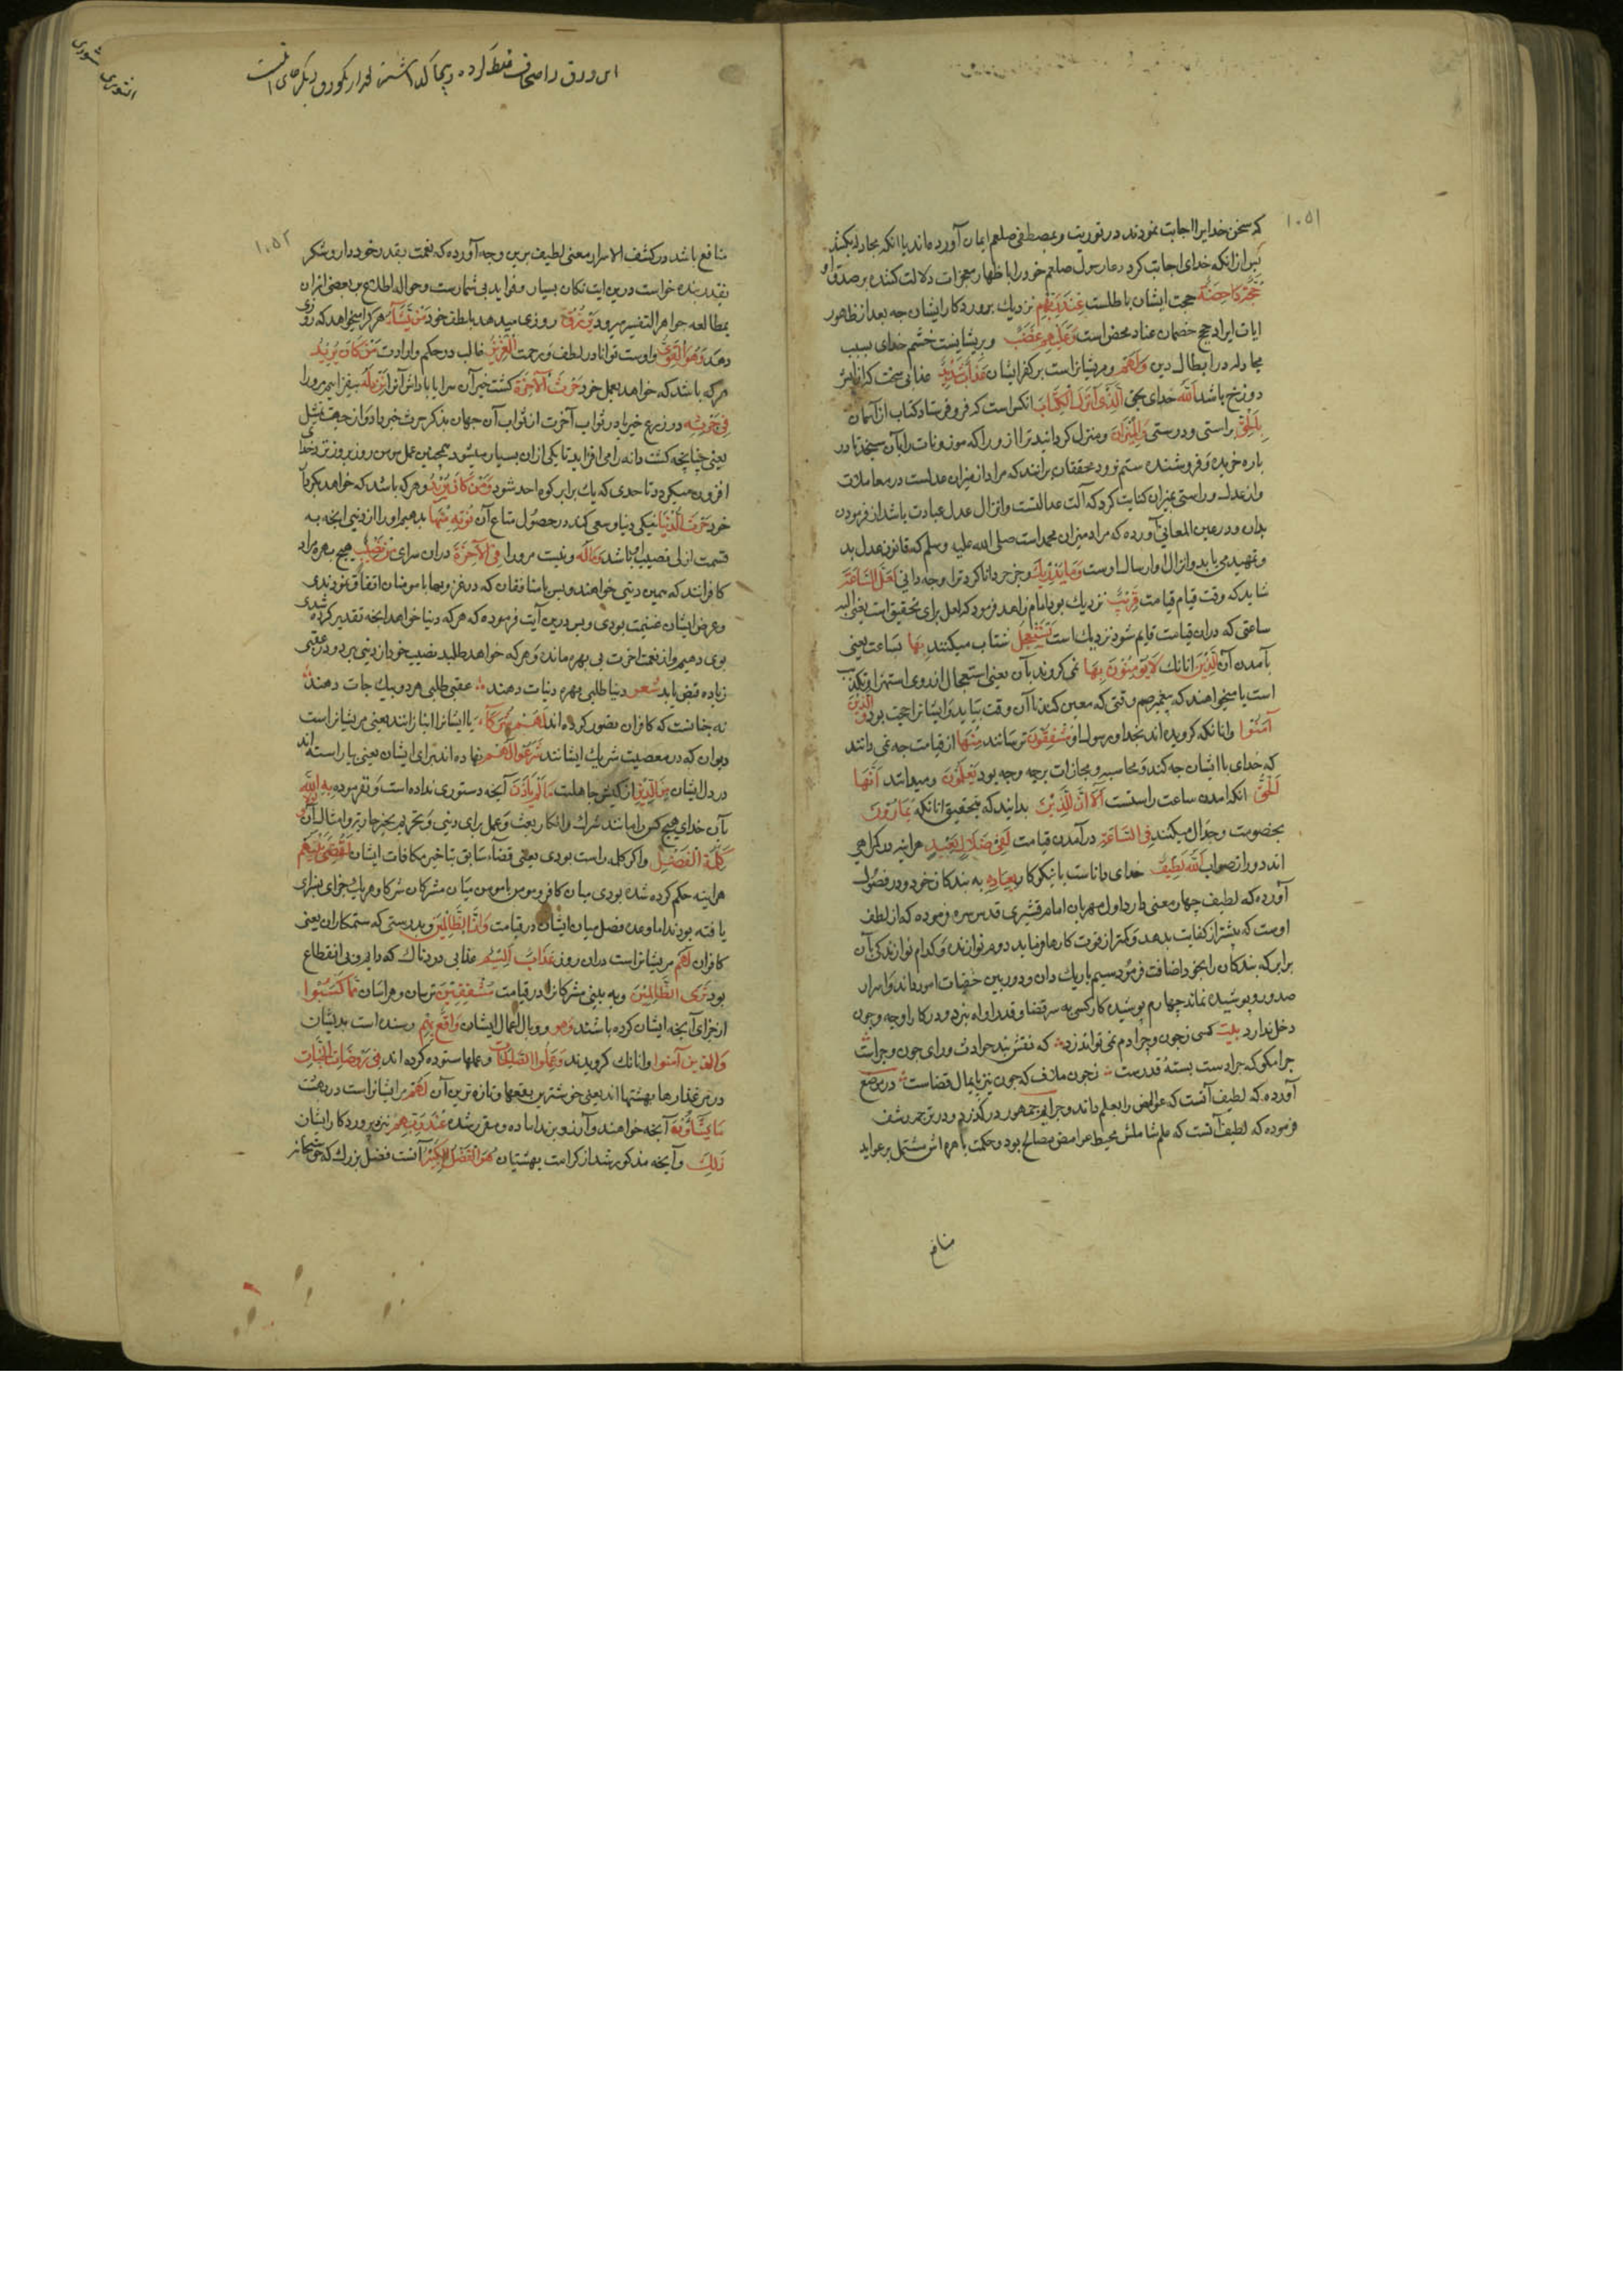 ۱۰۵۱
که سخن خدایرا اجابت نمودند در توریت و بمصطفی صلعم ایمان آورده‌اند یا انکه مجادله میکنند
پس ازانکه خدای اجابت کرد دعا رسول صلعم خود را باظهار معجزات دلالت کننده بر صدق او
حُجَّتُهُمْ دَاحِضَةٌ حجت ایشان باطلست عِندَ رَبِّهِمْ نزدیک پروردکار ایشان چه بعد از ظهور
ایات ایراد حجج خصمان عناد محض است وَعَلَيْهِمْ غَضَبٌ و بریشانست خشم خدای بسبب
مجادله در ابطال دین وَلَهُمْ و مریشانراست بر کفر ایشان عَذَابٌ شَدِيدٌ عذابی سخت که آن
دوزخ باشد اَللّهُ خدای بحق الَّذِي أَنزَلَ الْكِتَابَ انکس است که فرو فرستاد کتاب از آسمان
بِالْحَقِّ براستی و درستی وَالْمِيزَانَ و منزل کردانید ترازو را که موزونات را بآن سنجند تا در
باره خرنده و فروشنده ستم نرود محققان برانند که مراد از میزان عدلست در معاملات
و از عدل و راستی بمیزان کنایت کرد که آلت عدالتست و انزال عدل عبادت باشد از فرمودن
بدان و در عین المعانی آورده که مراد میزان محمد است صلی الله علیه وسلم که قانون عدل بد
و تمهید می‌یابد و انزال او ارسال اوست وَمَا يُدْرِيكَ و چه چیز دانا کرد ترا و چه دانی لَعَلَّ السَّاعَةَ
شاید که وقت قیام قیامت قَرِيبٌ نزدیک بود امام زاهد فرمود که لعل برای تحقیق است یعنی البته
ساعتی که دران قیامت قایم شود نزدیک است يَسْتَعْجِلُ شتاب میکنند بِهَا بساعت یعنی
بآمدن آن الَّذِينَ انانک لَا يُؤْمِنُونَ بِهَا نمی‌کروند بآن یعنی استعجال از روی استهزا و تکذیب
است یا میخواهند که پیغمبر صم وقتی که معین کند تا آن وقت بیاید و ایشانرا حجت بود وَالَّذِينَ
آمَنُوا و انانکه کرویده‌اند بخدا و رسول او مُشْفِقُونَ ترسانند مِنْهَا از قیامت چه نمی‌دانند
که خدای با ایشان چه کند و محاسبه و مجازات برچه وجه بود وَيَعْلَمُونَ و میدانند أَنَّهَا
الْحَقُّ انکه امدن ساعت راستست أَلَا إِنَّ الَّذِينَ بدانید که بتحقیق انانکه يُمَارُونَ
بخصومت و جدال میکنند فِي السَّاعَةِ در آمدن قیامت لَفِي ضَلَالٍ بَعِيدٍ هراینه در کمراهی
اند دور از صواب اللَّهُ لَطِيفٌ خدای داناست یا نیکوکار بِعِبَادِهِ به بندکان خود و در فصول
آورده که لطیف چهار معنی دارد اول مهربان امام قشیری قدس سره فرموده که از لطف
اوست که بیشتر از کفایت بدهد و کمتر از قوت کار فرماید دوم نوازنده و کدام نوازندکی بآن
برابر که بندکان را بخود اضافت فرمود سیم باریک دان و دوربین خفیات امور داند و اسرار
صدور و پوشیده نماند چهارم پوشیده کار کسی به سر قضا و قدر او راه نبرد و در کار او چه و چون
دخل ندارد بیت کسی ز چون و چرا دم نمی تواند زد که نقش بند حوادث ورای چون و چراست
چرا مکو که چرا دست بسته قدرست ز چون ملاف که چون نیز پایمال قضاست در موضع
آورده که لطیف آنست که غوامض را بعلم داند و جرایم جمهور درکذرد و در ترجمه رشف
فرموده که لطیف آنست که علم شاملش محیط غوامض مصالح بود و حکمت باهره اش مشتمل بر عواید
منافع
این ورق را صحاف غلط کرده پیجا کذاشته
الشوری شوری
۱۰۵۲
منافع باشد در کشف الاسرار معنی لطیف برین وجه آورده که نعمت بقدر خود داد و شکر
بقدر بنده خواست درین ایت نکات بسیار و فواید بی شمارست و حواله اطلاع بر بعضی ازان
بمطالعه جواهر التفسیر میرود يَرْزُقُ روزی میدهد بلطف خود مَن يَشَاءُ هرکرا میخواهد که روزی
دهد وَهُوَ الْقَوِيُّ و اوست توانا در لطف و رحمت الْعَزِيزُ غالب در حکم و ارادت مَن كَانَ يُرِيدُ
هرکه باشد که خواهد بعمل خود حَرْثَ الْآخِرَةِ کشت خیر آن سرا یا پاداش آنرا نَزِدْ لَهُ بیفزاییم مرورا
فِي حَرْثِهِ در زرع خیر یا در ثواب آخرت از ثواب آن جهان بذکر حرث خبر داد و از جهت تمثیل
یعنی چنانچه کشت دانه را می افزاید تا یکی ازان بسیار میشود همچنین عمل مومن روز بروز نزد خدای
افزون میکردد تا حدی که یک برابر کوه احد شود وَمَن كَانَ يُرِيدُ و هرکه باشد که خواهد بکردار
خود حَرْثَ الدُّنْيَا نیکی دنیا و سعی کند در حصول متاع آن نُؤْتِهِ مِنْهَا بدهیم او را از دنیی انچه به
قسمت ازلی نصیب او باشد وَمَا لَهُ و نیست مرورا فِي الْآخِرَةِ دران سرای مِن نَّصِيبٍ هیچ بهره مراد
کافرانند که همین دنیی خواهند و بس یا منافقان که در غزوها با مومنان اتفاق نمودندی
و غرض ایشان غنیمت بودی و بس درین آیت فرموده که هرکه دنیا خواهد انچه تقدیر کرده شدی
بوی دهیم و از نعمت اخرت بی بهره ماند و هرکه خواهد طلبید نصیب خود از دنیی ببرد و در عقبی
زیاده فیض یابد شعر دنیا طلبی بهره دنیات دهند عقبی طلبی هر دو بیک جات دهند
نه چنانست که کافران تصور کرده اند أَمْ لَهُمْ شُرَكَاءُ یا ایشانرا انبازانند یعنی مریشانراست
دیوان که در معصیت شریک ایشانند شَرَعُوا لَهُم نهاده اند برای ایشان یعنی بیاراسته اند
در دل ایشان مِّنَ الدِّينِ از کیش جاهلت مَا لَمْ يَأْذَن آنچه دستوری نداده است و نفرموده بِهِ اللَّهُ
بآن خدای هیچ کس را مانند شرک و انکار بعث و عمل برای دنیی و تحریم بحیرها و امثال آن وَلَوْلَا
كَلِمَةُ الْفَصْلِ و اکر کلمه راست بودی یعنی قضاء سابق بتاخیر مکافات ایشان لَقُضِيَ بَيْنَهُمْ
هراینه حکم کرده شده بودی میان کافر و مومن یا مومن میان مشرکان شرکا و هریک جزای بسزای
یافته بودند اما وعده فصل میان ایشان در قیامت وَإِنَّ الظَّالِمِينَ و بدرستی که ستمکاران یعنی
کافران لَهُمْ مریشانراست دران روز عَذَابٌ أَلِيمٌ عذابی دردناک که دایم و بی انقطاع
بود تَرَى الظَّالِمِينَ و به بینی مشرکانرا در قیامت مُشْفِقِينَ ترسان و هراسان مِمَّا كَسَبُوا
از جزای آنچه ایشان کرده باشند وَهُوَ و وبال اعمال ایشان وَاقِعٌ بِهِمْ رسنده است بدیشان
وَالَّذِينَ آمَنُوا و انانک کرویدند وَعَمِلُوا الصَّالِحَاتِ و عملها ستوده کرده اند فِي رَوْضَاتِ الْجَنَّاتِ
در مرغزارها بهشتها اند یعنی خوشترین بقعها و تازه ترین آن لَهُم مرایشانراست در بهشت
مَّا يَشَاءُونَ آنچه خواهند و آرزو برند اماده و مقرر شده عِندَ رَبِّهِمْ نزد پروردکار ایشان
ذَلِكَ و آنچه مذکور شد از کرامت بهشتیان هُوَ الْفَضْلُ الْكَبِيرُ آنست فضل بزرک که